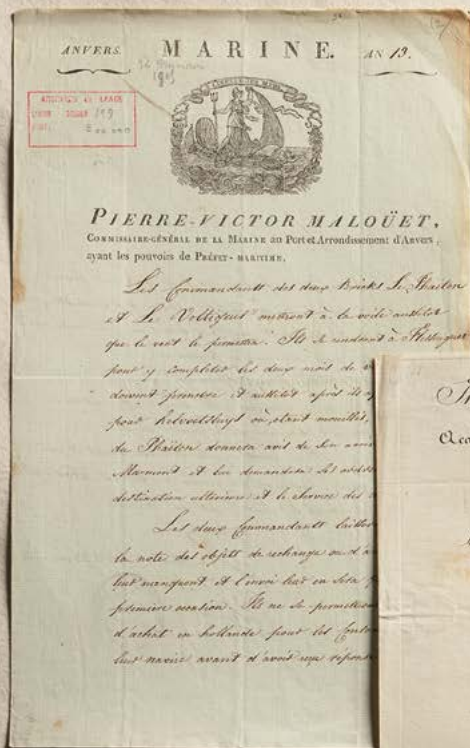 ANVERS. MARINE. AN 13.
1805
LIBERTÉ DES MERS
PIERRE-VICTOR MALOÜET,
COMMISSAIRE-GÉNÉRAL DE LA MARINE au Port et Arrondissement d'Anvers,
ayant les pouvoirs de PRÉFET-MARITIME.
Les Commandants des deux Bricks Le Phaëton
et Le Voltigeur mettront à la voile aussitôt
que le vent le permettra. Ils se rendront à Flessingue
pour y completter les deux mois de
doivent prendre et aussitôt après ils
pour helvoetsluys où, étant mouillés,
du Phaëton donnera avis de son
Marmont et lui demandera ses
destination ultérieure et le Service des
Les deux Commandants laisseront
la note des objets de rechange ou d'a
leur manquent et l'envoi leur en sera
première occasion. Ils ne se permettront
d'achat en hollande pour les
leur navire avant d'avoir reçu